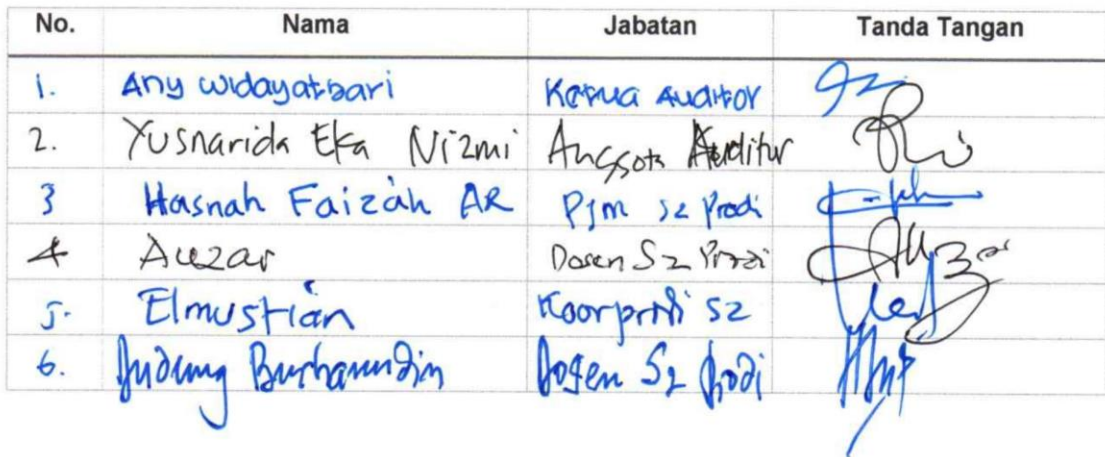 No. Nama Jabatan Tanda Tangan
1. Any widayatsari Ketua Auditor
2. Yusnarida Eka Nizmi Anggota Auditur
3 Hasnah Faizah AR PJM S2 Prodi
4 Auzar Dosen S2 Prodi
5. Elmustian Koorprodi S2
6. Burhanuddin Dosen S2 Prodi